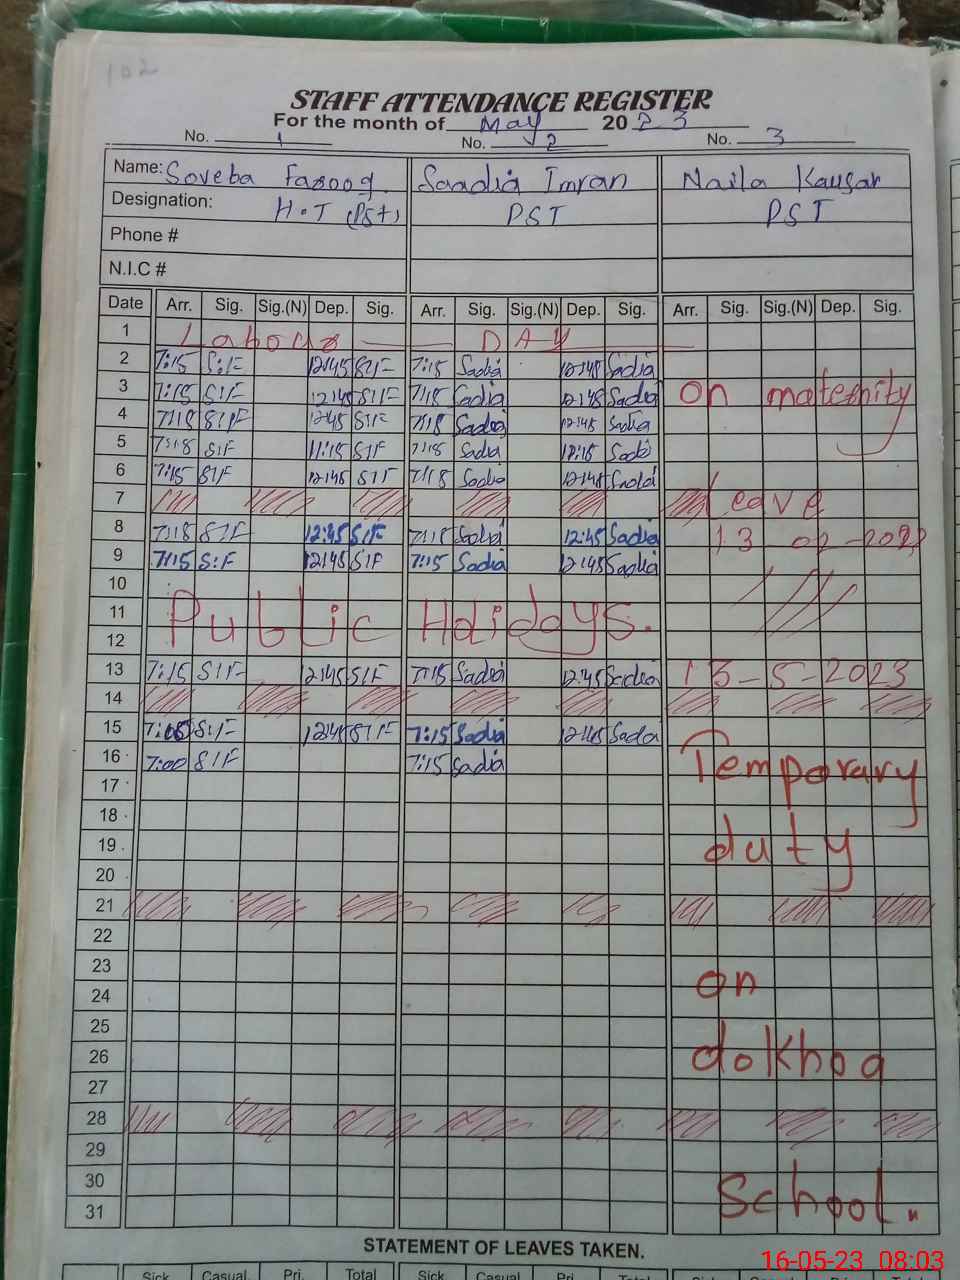 102
STAFF ATTENDANCE REGISTER
For the month of May 2023
No. 1 No. 2 No. 3
Name: Soveba Farooq Saadia Imran Naila Kausar
Designation: H.T (Pst) PST PST
Phone #
N.I.C #
Date Arr. Sig. Sig.(N) Dep. Sig. Arr. Sig. Sig.(N) Dep. Sig. Arr. Sig. Sig.(N) Dep. Sig.
1 Labour DAY
2 7:15 S:F 12:45 S:F 7:15 Sadia 12:45 Sadia
3 7:15 S:F 12:45 S:F 7:15 Sadia 12:45 Sadia On maternity
4 7:15 S:F 12:45 S:F 7:15 Sadia 12:45 Sadia
5 S:F 11:15 S:F Sadia Sadia
6 7:15 S:F 12:45 S:F 7:15 Sadia 12:45 Sadia
7 leave
8 7:15 S:F 12:45 S:F 7:15 Sadia 12:45 Sadia 13 02-2023
9 7:15 S:F 12:45 S:F 7:15 Sadia 12:45 Sadia
10
11 Public Holidays.
12
13 7:15 S:F 12:45 S:F 7:15 Sadia 12:45 Sadia 13-5-2023
14
15 S:F 12:45 S:F 7:15 Sadia 12:45 Sadia
16 7:00 S:F 7:15 Sadia Temporary
17
18
19 duty
20
21
22
23
24 on
25
26 dokhoa
27
28
29
30
31 School.
STATEMENT OF LEAVES TAKEN.
Sick Casual Pri. Total Sick Casual Pri. Total Sick Casual
16-05-23 08:03